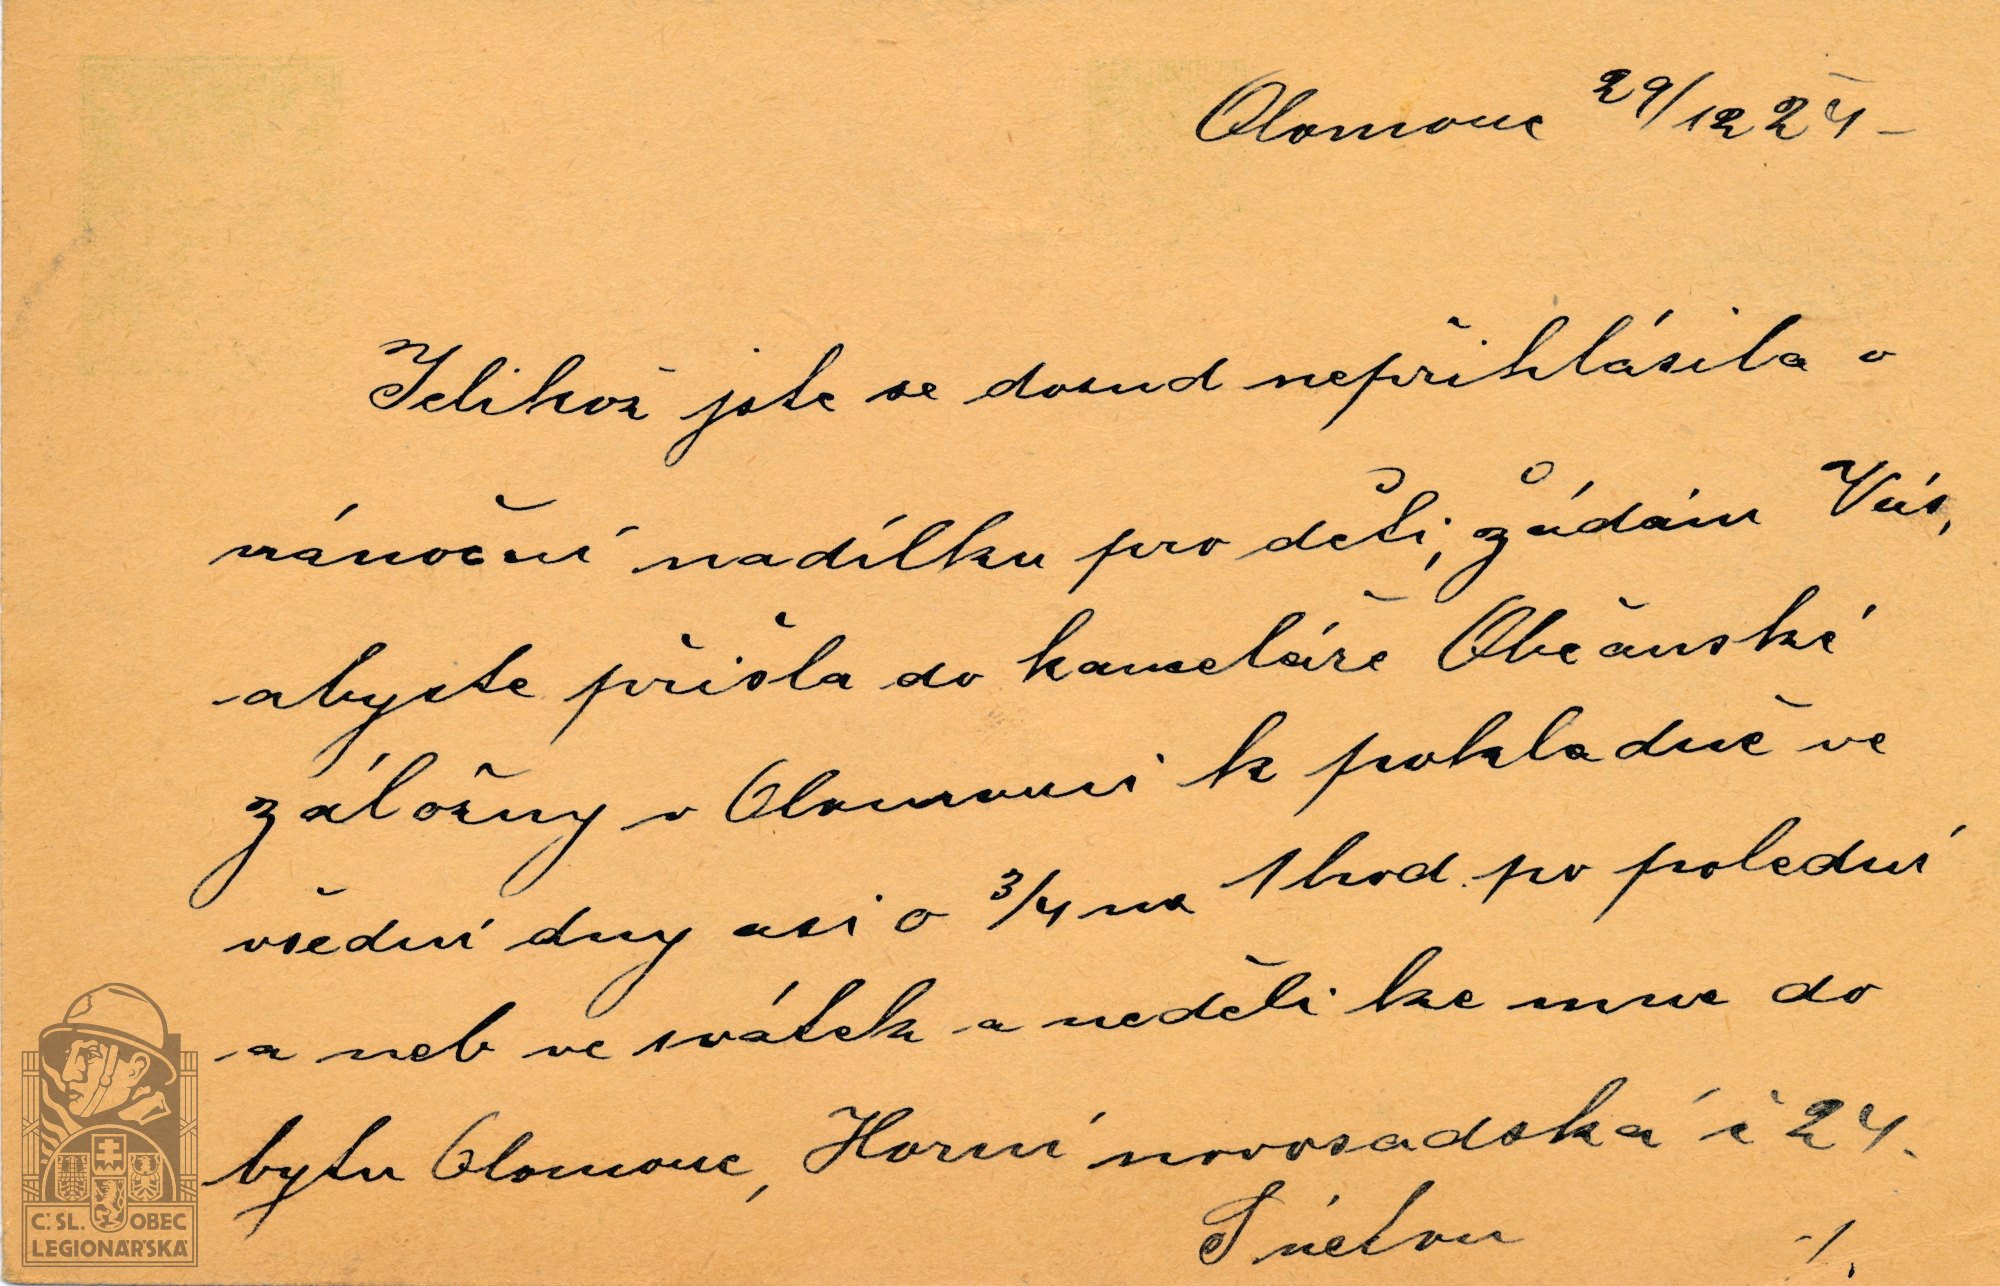 Olomouc 29/12 24 -
Jelikož jste se dosud nepřihlásila o
vánoční nadílku pro děti, žádám Vás,
abyste přišla do kanceláře Občanské
záložny v Olomouci k pokladně ve
všední dny asi o 3/4 na 1 hod. po polední
a neb ve svátek a neděli ke mne do
bytu Olomouc, Horní novosadská č 24.
S úctou
Č. SL. OBEC
LEGIONÁŘSKÁ